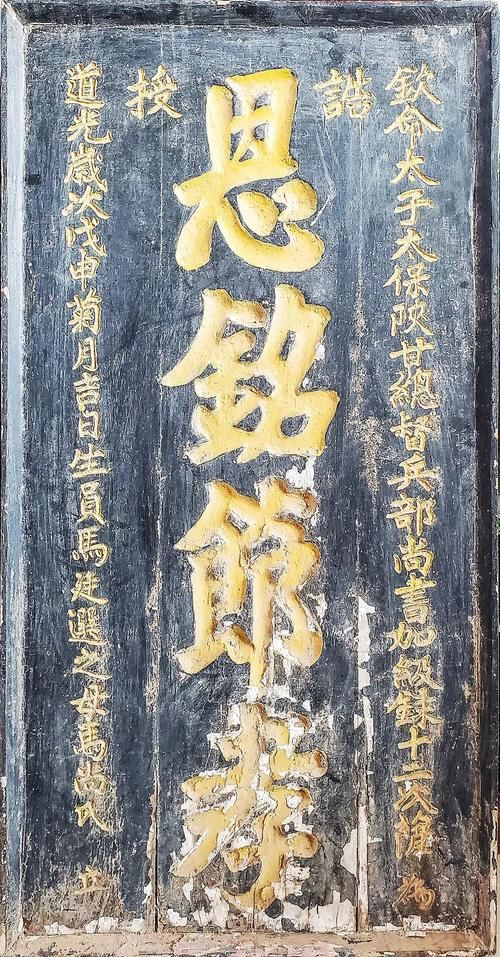 欽命大子太保陝甘總督兵部尚書加級錄十二次隆 為
誥
恩銘節孝
授
道光歲次戊申菊月吉日生員馬廷選之母馬尚氏 立